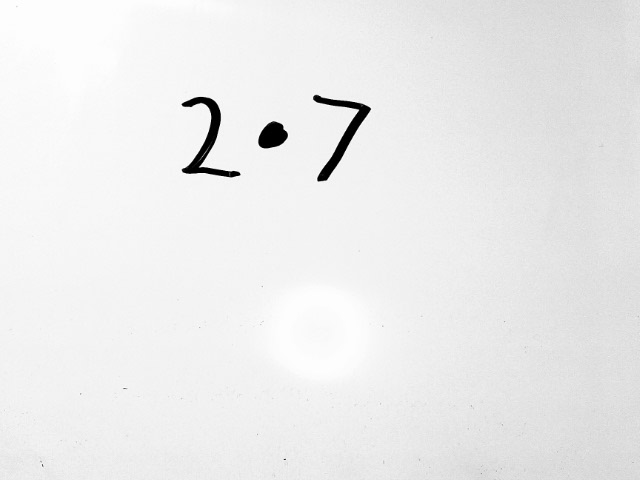 2·7